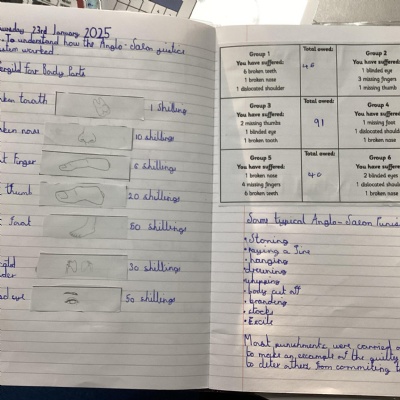 23rd January 2025
To understand how the Anglo-Saxon justice
worked
for Body Parts
1 shilling
nose
10 shillings
finger
5 shillings
thumb
20 shillings
50 shillings
30 shillings
50 shillings
Group 1
You have suffered:
6 broken teeth
1 broken nose
1 dislocated shoulder
Total owed:
46
Group 2
You have suffered:
1 blinded eye
3 missing fingers
1 missing thumb
Group 3
You have suffered:
2 missing thumbs
1 blinded eye
1 broken tooth
Total owed:
91
Group 4
You have suffered:
1 missing foot
1 dislocated should
1 broken nose
Group 5
You have suffered:
1 broken nose
4 missing fingers
6 broken teeth
Total owed:
40
Group 6
You have suffered:
2 blinded eyes
1 dislocated shoul
1 broken nose
Some typical Anglo-Saxon Punis
• Stoning
• Paying a fine
• hanging
• drowning
• whipping
• body cut off
• branding
• stocks
• Excile
Most punishments were carried o
to make an example of the guilty
to deter others from commiting t